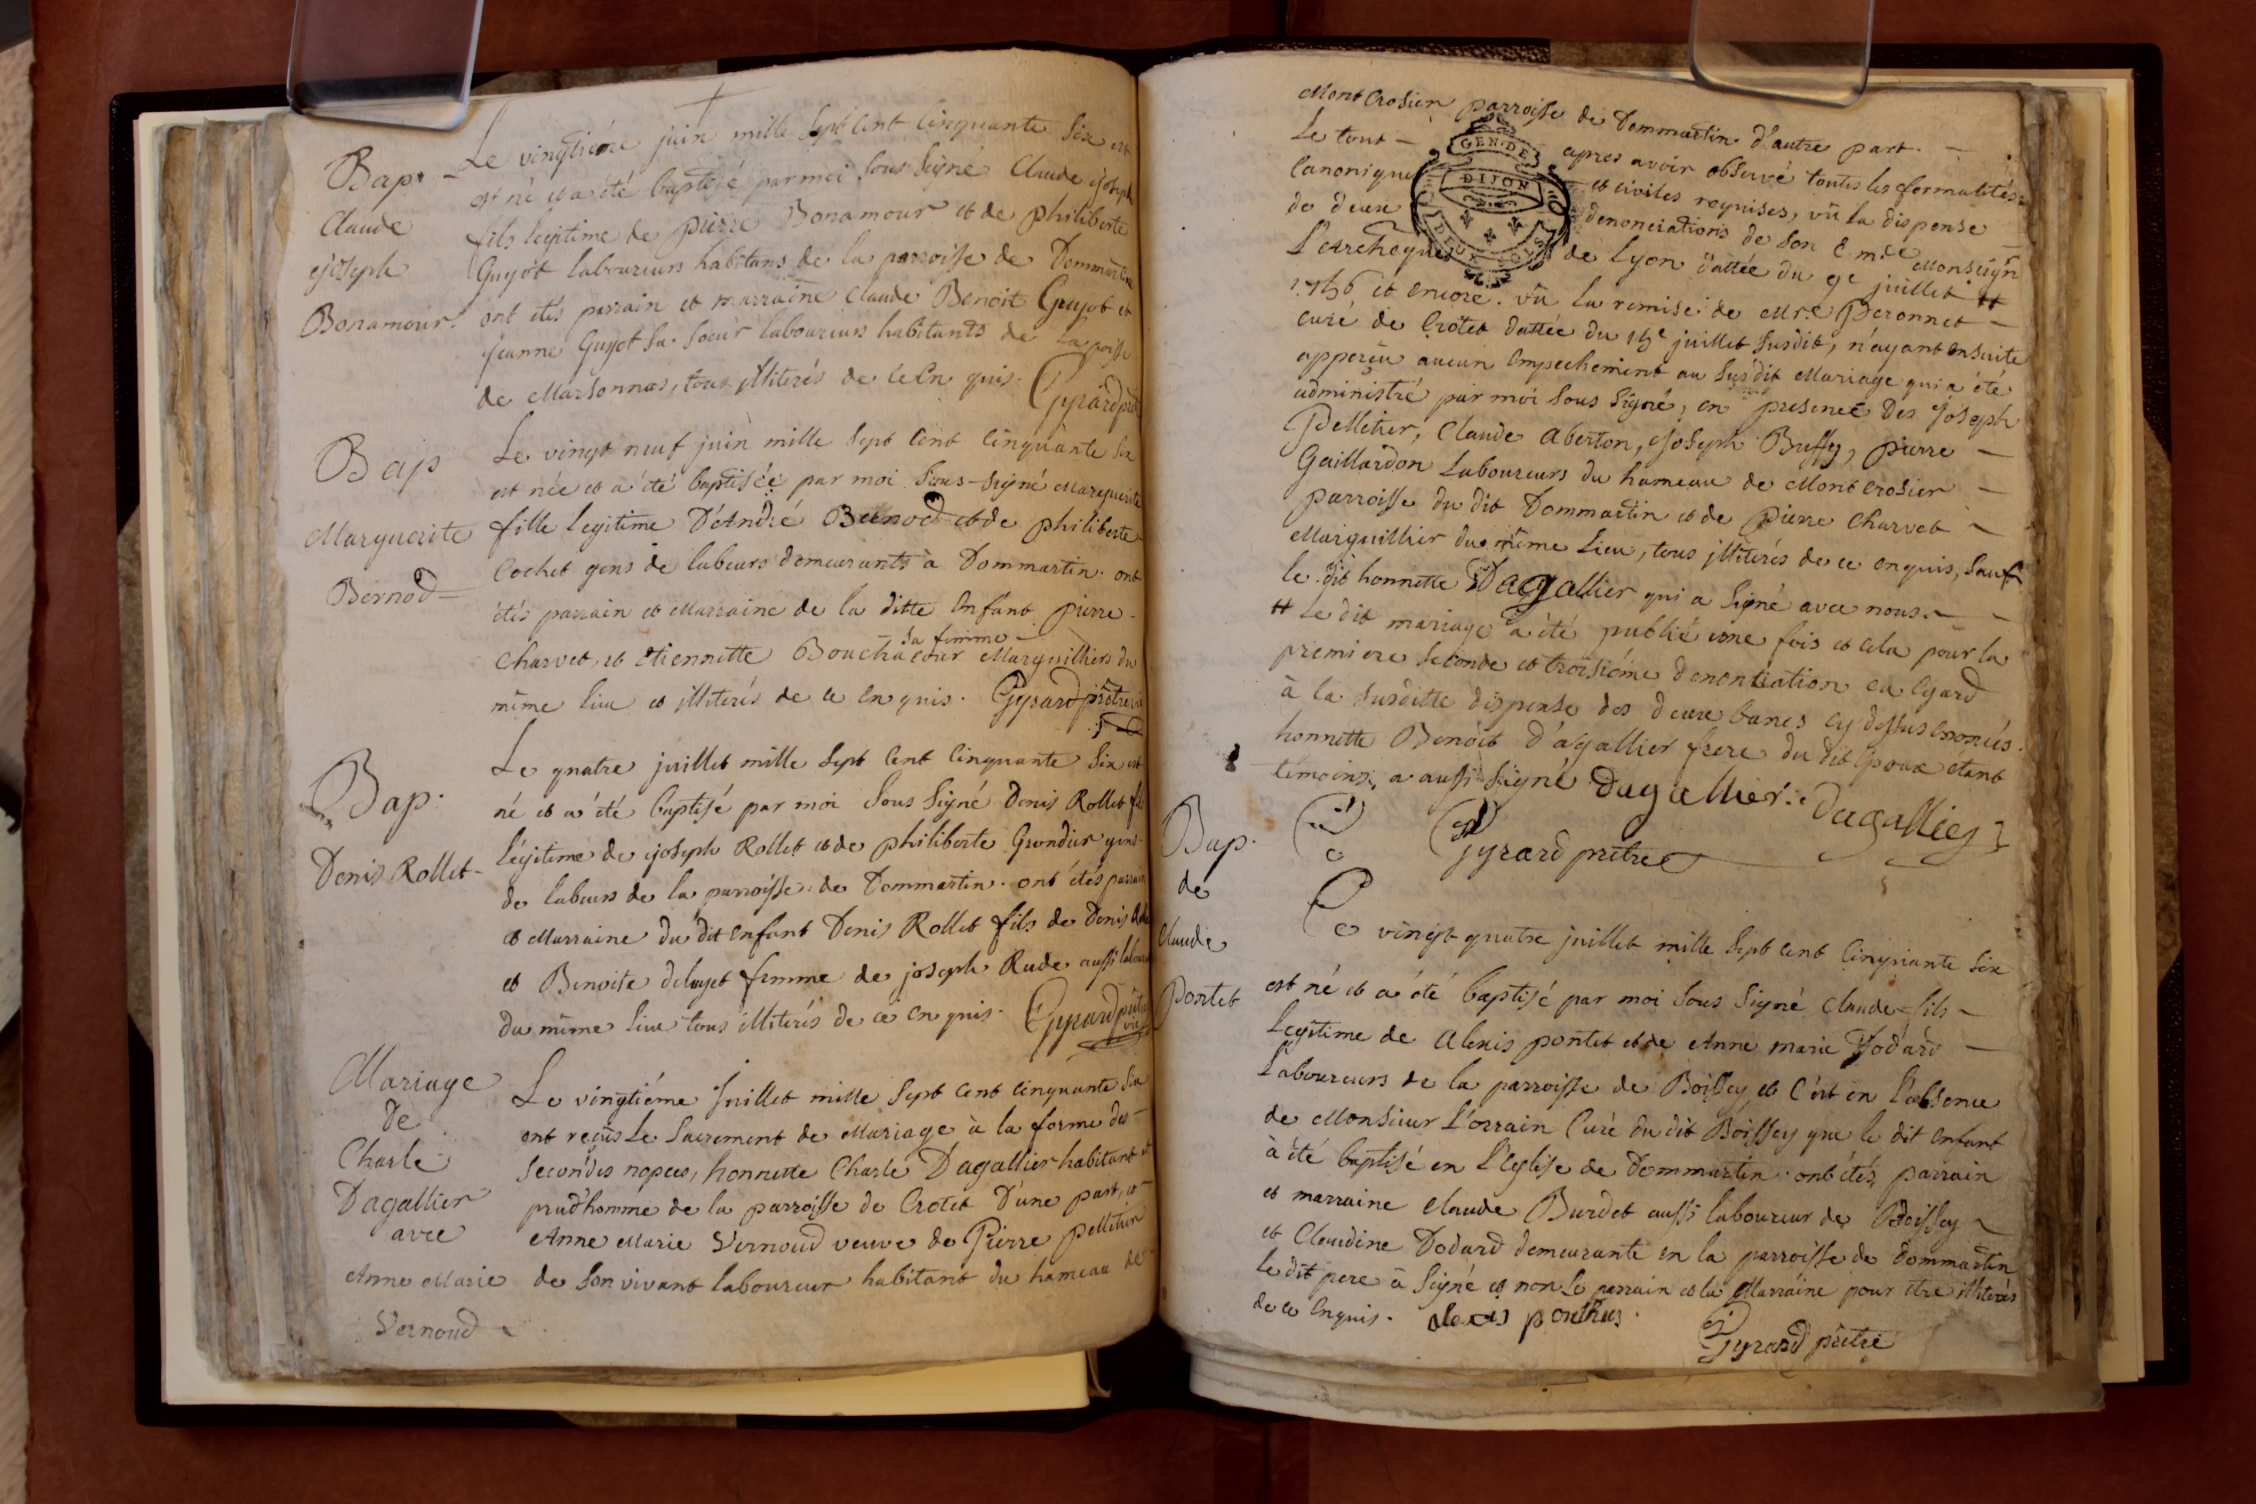 Bap.
Claude
Joseph
Bonamour.
Le vingtiéme juin mille Sept Cent Cinquante Six est
est né et a été baptisé par moi Sous Signé Claude Joseph
fils legitime de pierre Bonamour et de philiberte
Guyot laboureurs habitans de la parroisse de Dommartin
ont etés parrain et marraine Claude Benoit Guyot et
jeanne Guyot Sa Soeur laboureurs habitants de la poisse
de Marsonnas, tous illiterés de ce Enquis. Gyrard ptre
Bap
Marguerite
Bernod
Le vingt neuf juin mille Sept Cent Cinquante Six
est née et a été baptisée par moi Sous-Signé Marguerite
fille Legitime D'André Bernod et de philiberte
Cochet gens de labeurs demeurants à Dommartin. ont
étés parrain et Marraine de la ditte Enfant pierre
Charvet, et Etiennette Bouchacour sa femme Marguilliers du
même lieu et illiterés de ce Enquis. Gyrard prêtre
Bap.
Denis Rollet
Le quatre juillet mille Sept Cent Cinquante Six est
né et a été baptisé par moi Sous Signé Denis Rollet fils
légitime de joseph Rollet et de philiberte Grondier gens
de labeurs de la parroisse de Dommartin. ont étés parrain
et Marraine du dit Enfant Denis Rollet fils de Denis
et Benoite femme de joseph Rude aussi
du même lieu tous illiterés de ce Enquis. Gyrard prêtre
Mariage
De
Charle
Dagallier
avec
Anne Marie
Vernoud
Le vingtiéme Juillet mille Sept Cent Cinquante Six
ont reçus Le Sacrement de Mariage à la forme des
Secondes nopces, honnette Charle Dagallier habitant et
prud'homme de la parroisse de Crotet D'une part, et
Anne Marie Vernoud veuve de Pierre pelletier
de Son vivant laboureur habitant du hameau de
Mont Crosier parroisse de Dommartin d'autre part.
Le tout apres avoir observé toutes les formalités
Canoniques et civiles requises, vû la dispense
de deux dénonciations de Son Emce Monseignr
L'Archeque de Lyon dattée du 9e juillet #
1756 et encore vû la remise de Mre Peronnet
curé de Crotet dattée du 15e juillet Susdit, n'ayant ensuite
apperçu aucun Empechement au Susdit Mariage qui a été
administré par moi Sous Signé, en presence Des Joseph
Pelletier, Claude Aberton, Joseph Buffy, pierre
Gaillardon Laboureurs du hameau de Mont Crosier
parroisse du dit Dommartin et de Pierre Charvet
Marguillier du même Lieu, tous illiterés de ce enquis, Sauf
le dit honnette Dagallier qui a Signé avec nous.
# Le dit mariage a été publié une fois et cela pour la
premiere Seconde et troisiéme denontiation eu Egard
à la Susditte dispense des deux bancs cy dessus enoncés.
honnette Benoit D'agallier frere du dit Epoux etant
temoins, a aussi Signé Dagallier. Dagallier
Gyrard prêtre
Bap.
de
Claude
Pontet
Le vingt quatre juillet mille Sept Cent Cinquante Six
est né et a été baptisé par moi Sous Signé Claude fils
Legitime de Alexis pontet et de Anne marie Dodard
Laboureurs de la parroisse de Boissey et C'est en L'absence
de Monsieur L'orrain Curé du dit Boissey que le dit Enfant
à été baptisé en L'Eglise de Dommartin. ont étés parrain
et marraine Claude Burdet aussi laboureur de Boissey
et Claudine Dodard demeurante en la parroisse de Dommartin
le dit pere à Signé et non le parrain et la Marraine pour être illiterés
de ce Enquis. alexis ponthus.
Gyrard prêtre
GEN. DE
DIJON